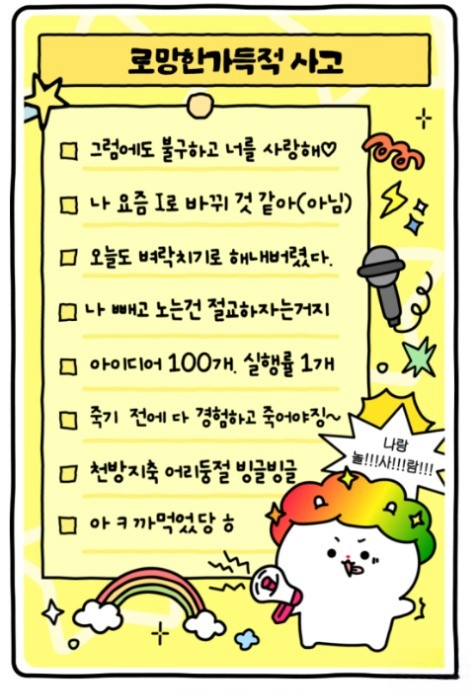 로망한가득적 사고
그럼에도 불구하고 너를 사랑해♡
나 요즘 I로 바뀌 것 같아(아님)
오늘도 벼락치기로 해내버렸다.
나 빼고 노는건 절교하자는거지
아이디어 100개. 실행률 1개
죽기 전에 다 경험하고 죽어야징~
천방지축 어리둥절 빙글빙글
아 ㅋ 까먹었당 ㅎ
나랑
놀!!!사!!!람!!!